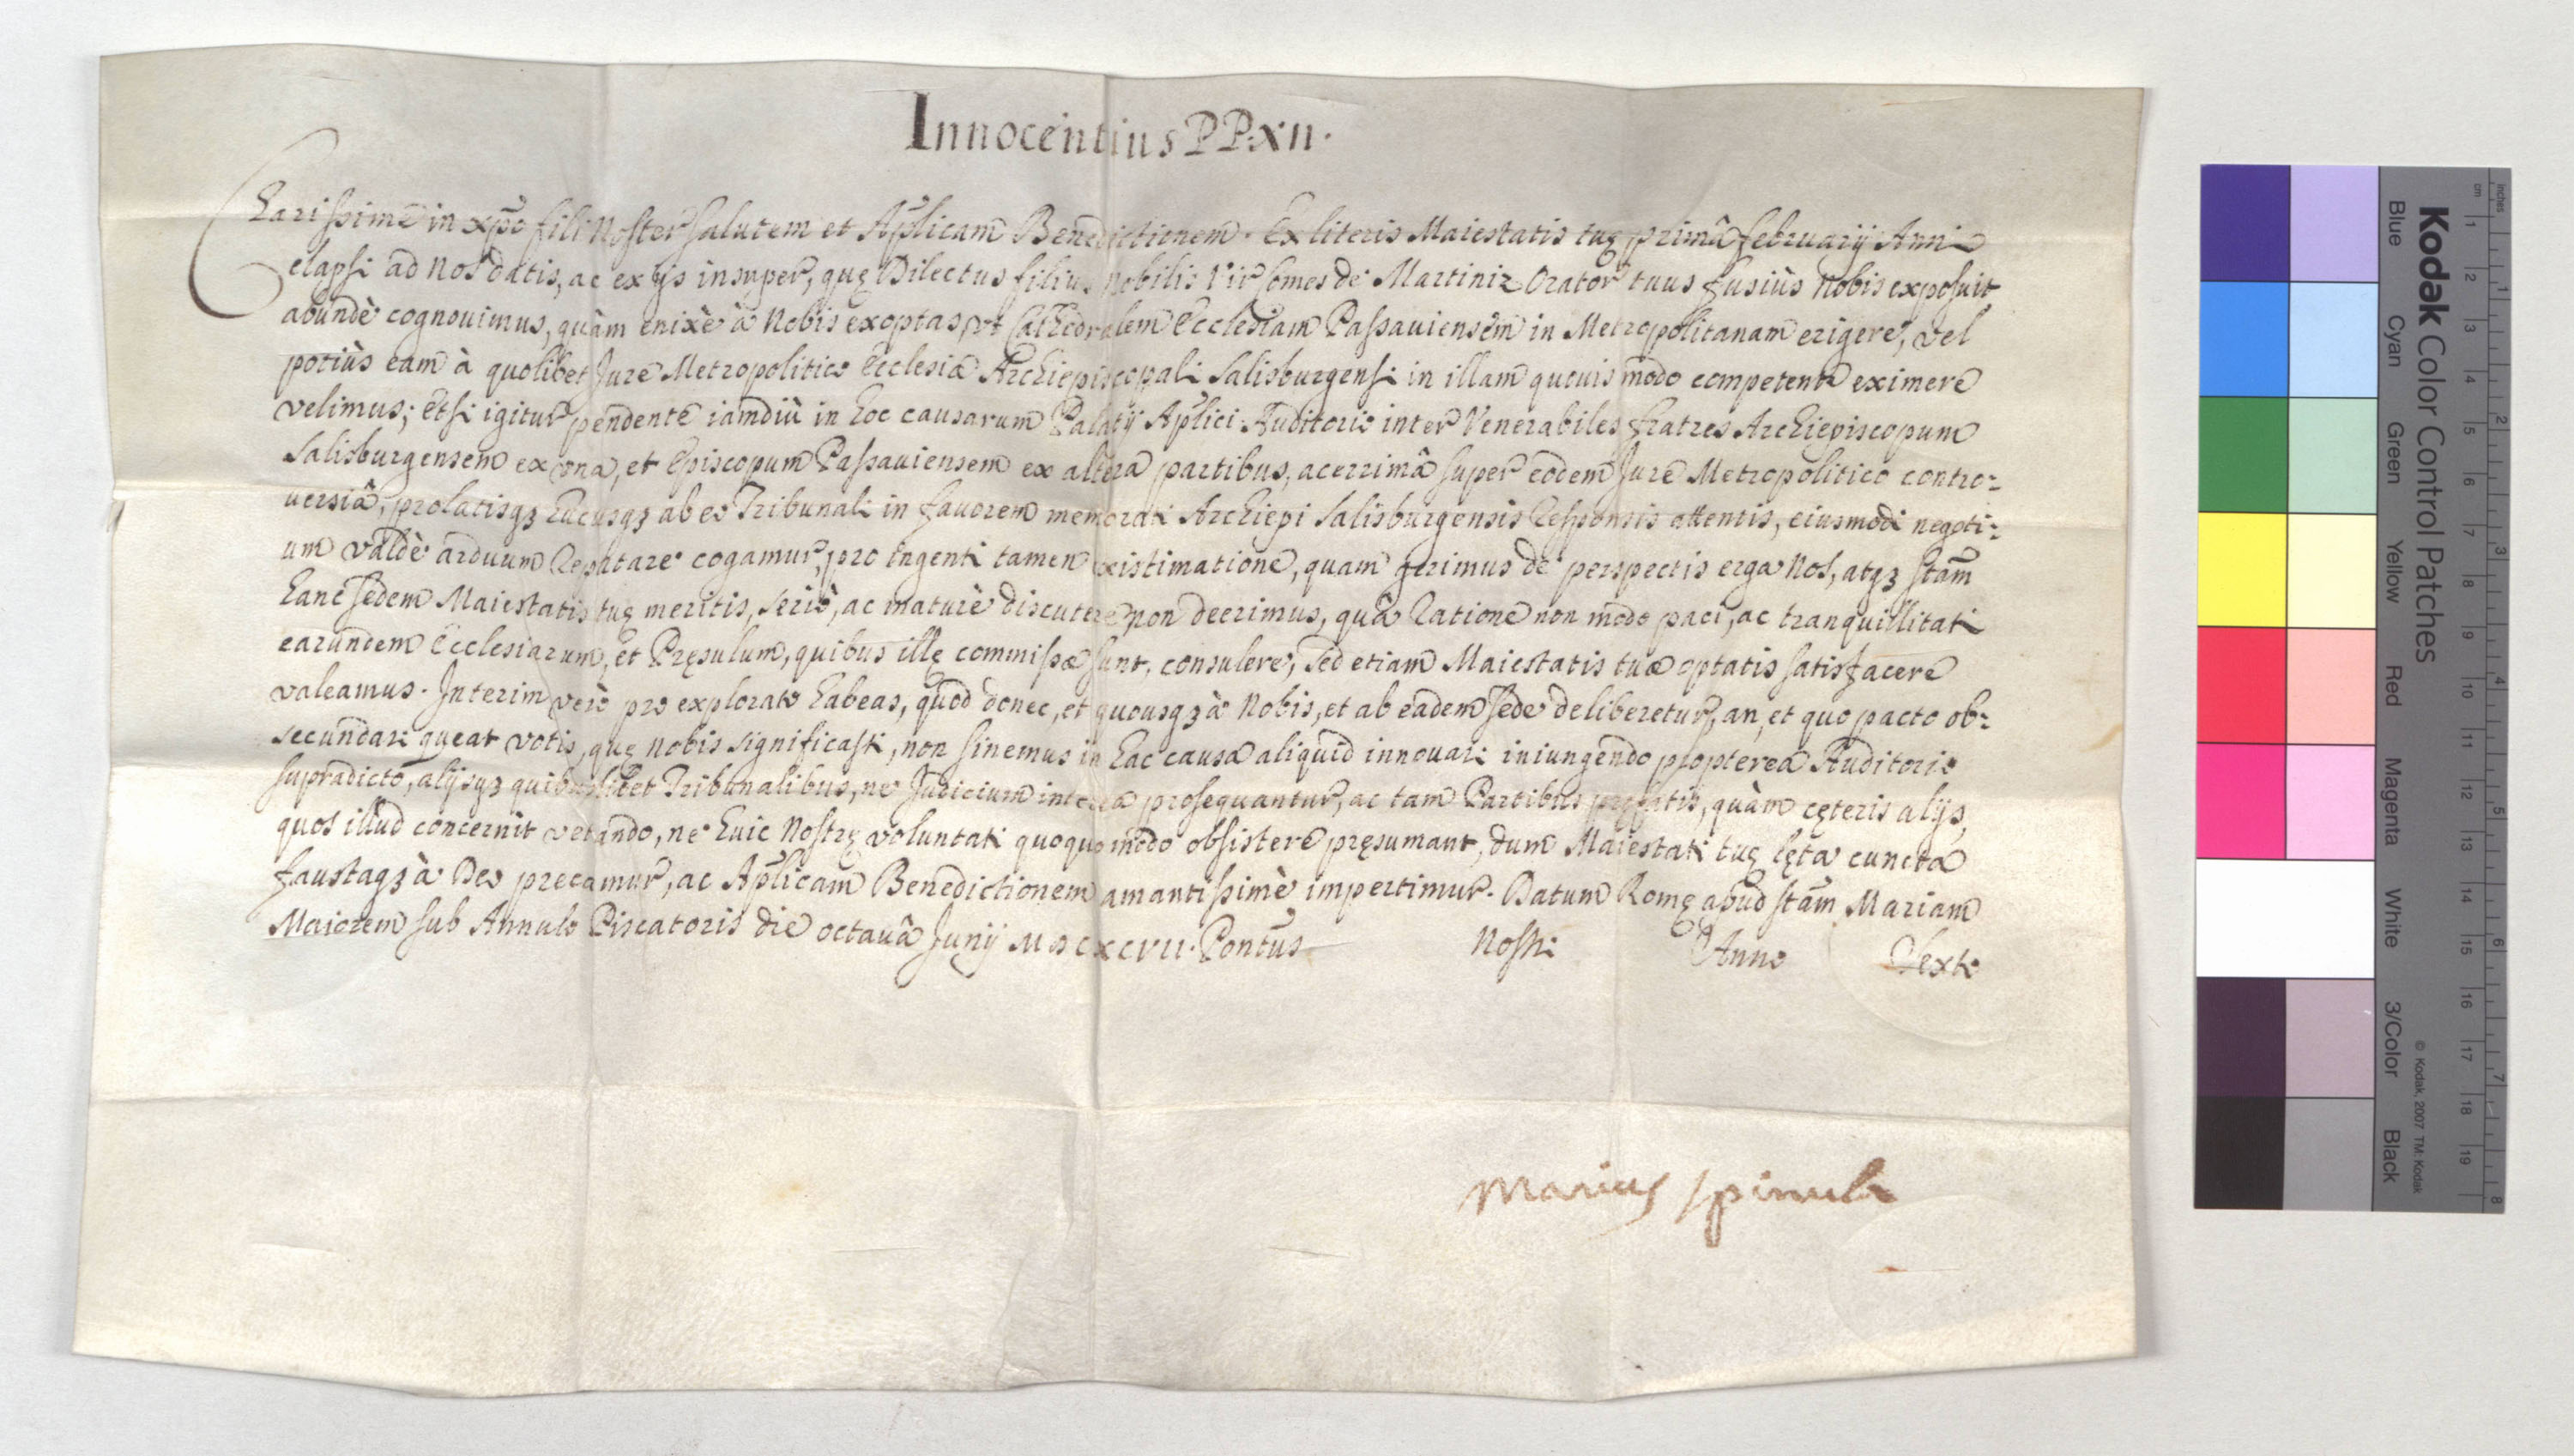 Innocentius PP. XII.
Carissime in Xp̄e fili Noster salutem et Aplicam Benedictionem. Ex literis Maiestatis tuę primâ februarij Anni
elapsi ad Nos datis, ac ex ijs insuper, quę Dilectus filius Nobilis Vir Comes de Martiniz Orator tuus fusiùs Nobis exposuit
abundè cognouimus, quàm enixè à Nobis exoptas, vt Cathedralem Ecclesiam Passauiensem in Metropolitanam erigere, vel
potiùs eam à quolibet Jure Metropolitico Ecclesiæ Archiepiscopali Salisburgensi in illam quouis modo competenti eximere
velimus; Etsi igitur pendente iamdiù in hoc causarum Palatij Aplici Auditorio inter Venerabiles fratres Archiepiscopum
Salisburgensem ex vna, et Episcopum Passauiensem ex altera partibus, acerrimâ super eodem Jure Metropolitico contro=
uersiâ, prolatisqꝫ hucusqꝫ ab eo Tribunali in fauorem memorati Archiepi Salisburgensis Responsis attentis, eiusmodi negoti=
um valdè arduum Reputare cogamur, pro ingenti tamen existimatione, quam gerimus de perspectis erga Nos, atqꝫ stam
hanc Sedem Maiestatis tuę meritis, seriò, ac maturè discutere non deerimus, quâ Ratione non modo paci, ac tranquillitati
earundem Ecclesiarum, et Pręsulum, quibus illę commissæ sunt, consulere, sed etiam Maiestatis tuæ optatis satisfacere
valeamus. Interim verò pro explorato habeas, quòd donec, et quousqꝫ à Nobis, et ab eadem Sede deliberetur, an, et quo pacto ob=
secundari queat votis, quę nobis significasti, non sinemus in hac causa aliquid innouari iniungendo propterea Auditorio
supradicto, alijsqꝫ quibuslibet Tribunalibus, ne Judicium interea prosequantur, ac tam Partibus pręfatis, quàm cęteris alijs,
quos illud concernit vetando, ne huic Nostrę voluntati quoquo modo obsistere pręsumant, dum Maiestati tuę lęta cuncta
faustaqꝫ à Deo precamur, ac Aplicam Benedictionem amantissimè impertimur. Datum Romę apud stam Mariam
Maiorem sub Annulo Piscatoris die octauâ Junij MDCXCVII. Pontus Nostri Anno Sexto
Marius Spinula
Kodak Color Control Patches
Blue Cyan Green Yellow Red Magenta White 3/Color Black
© Kodak, 2007 TM: Kodak
cm 1 2 3 4 5 6 7 8 9 10 11 12 13 14 15 16 17 18 19
inches 1 2 3 4 5 6 7 8